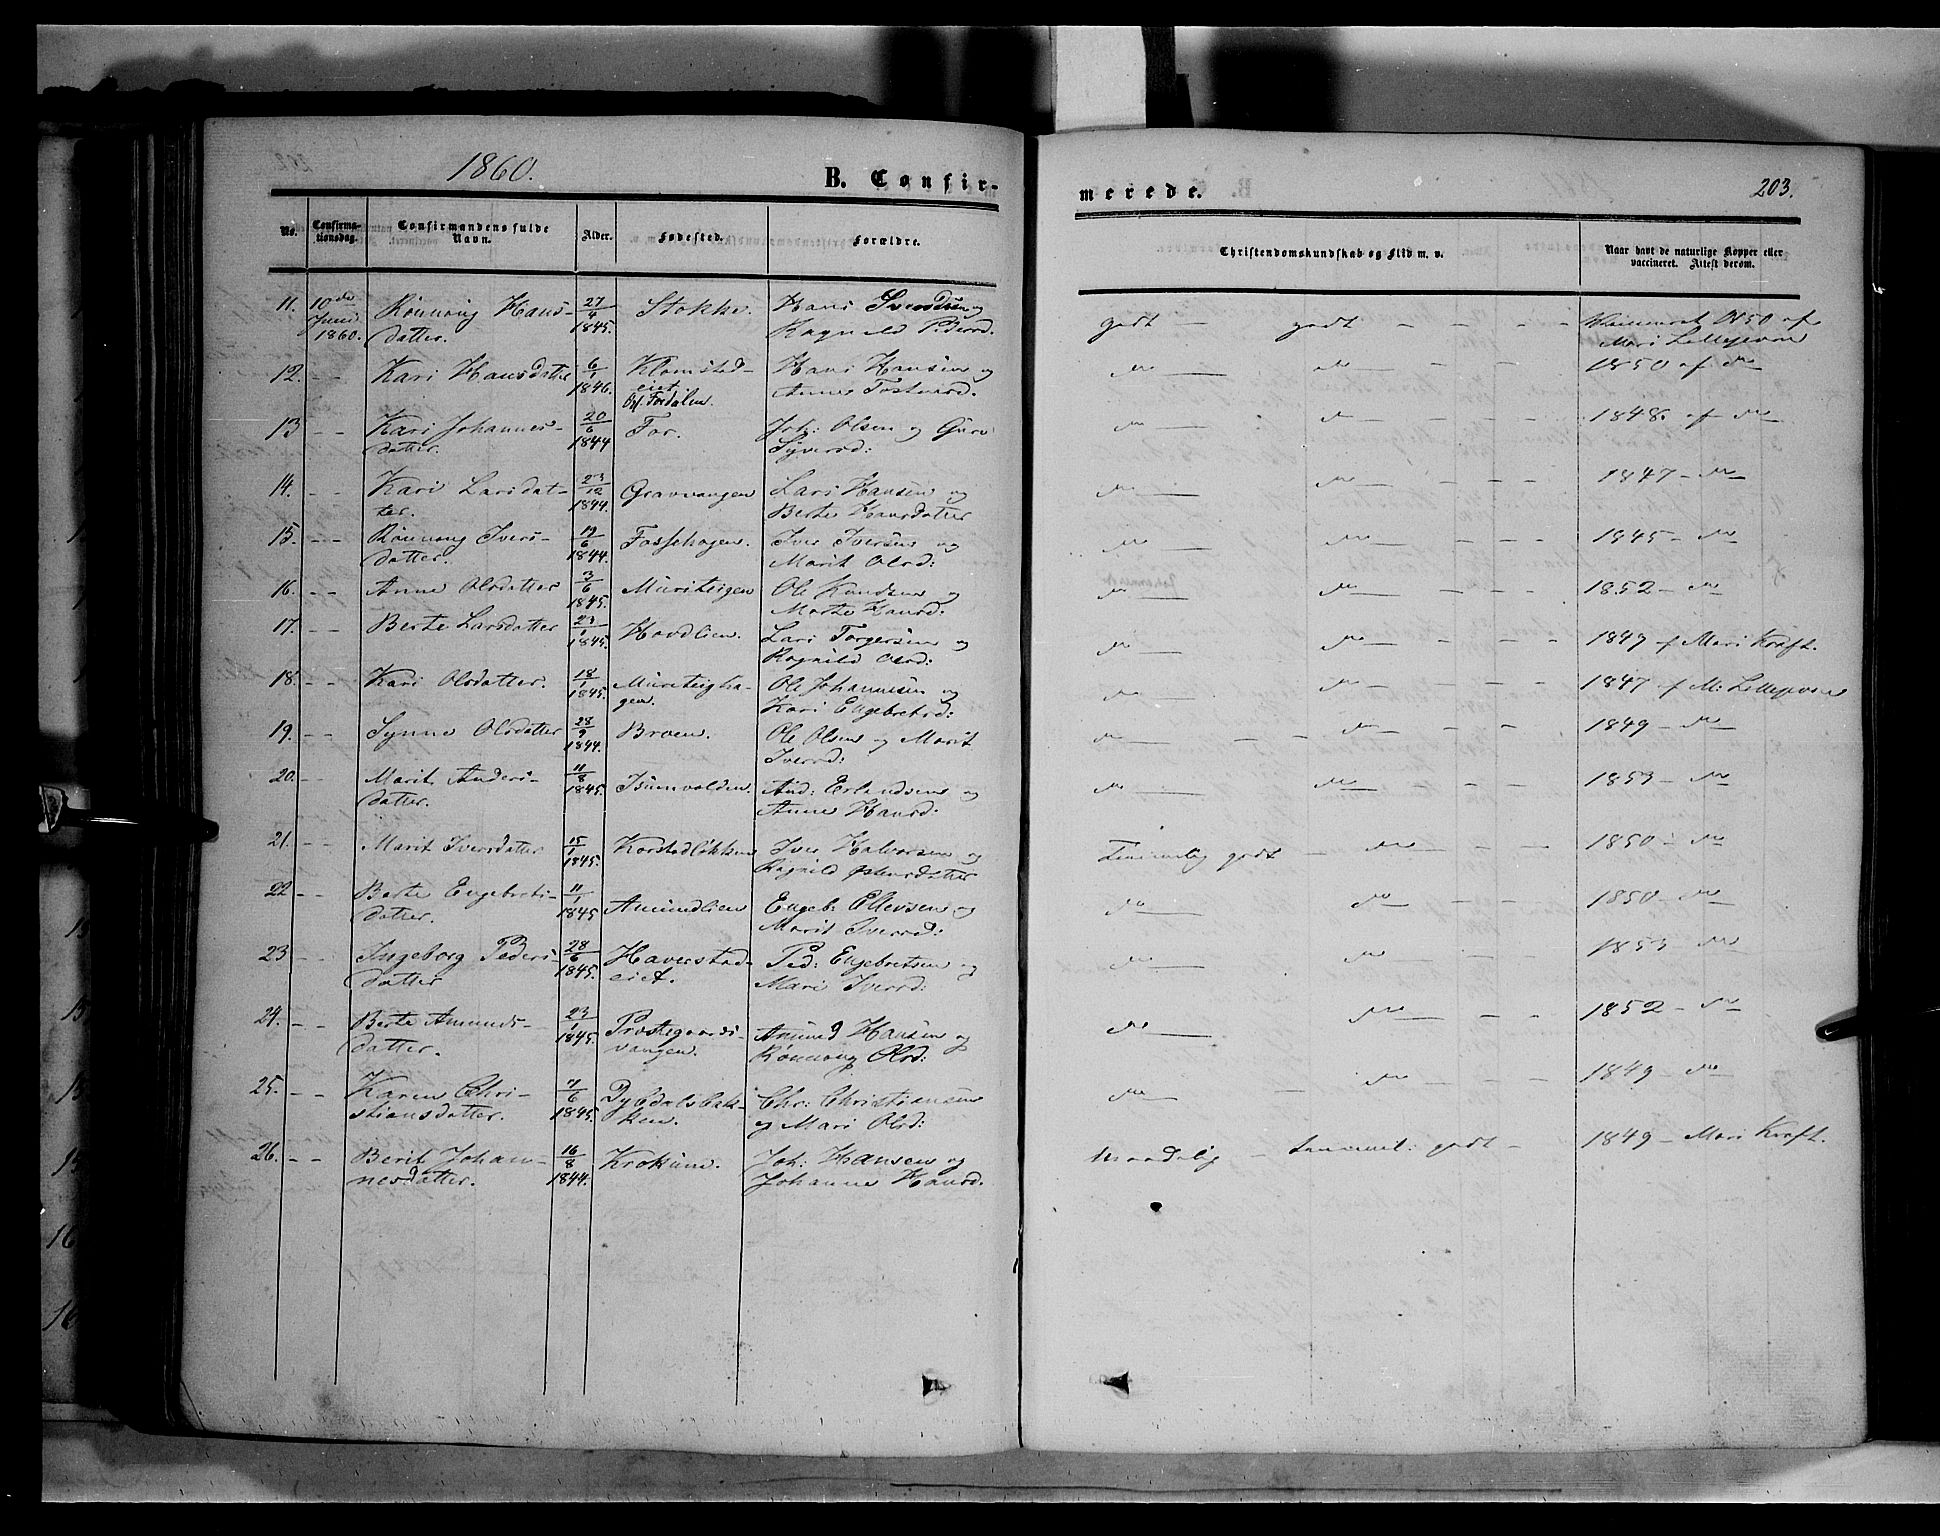 1860.
B. Confir-
merede.
203.
No.
Confirma-
tionsdag.
Confirmandens fulde
Navn.
Alder.
Fødested.
Forældre.
Christendomskundskab og Flid m. v.
Naar havt de naturlige Kopper eller
vaccineret. Attest derom.
11. 10de Juni 1860. Rönnoug Hans- 27/4 1845. Stokke. Hans Svendsen og
datter. Ragnild Pedersd.
godt — godt — — — — 1850 af
Mari Lillejevne
12. — — Kari Hansdatter 6/1 1846. Klomstad- Hans Hansen og
eiet Anne
do — do — — 1850 af do
13 — — Kari Johannes- 20/6 1844 For. Joh: Olsen og Guro
datter. Syversd:
do — do — — 1848. af do
14. — — Kari Larsdat- 23/12 1844. Gravvangen Lars Hansen og
ter. Berte Hansdatter
do — do — — 1847 — do
15. — — Rönnoug Ivers- 19/6 1844. Fossehagen. Iver Iversen og
datter. Marit Olsd:
do — do — — 1845 — do
16. — — Anne Olsdatter 3/6 1845. Muriteigen Ole Knudsen og
Marte Hansd:
do — do — — 1852 — do
17. — — Berte Larsdatter 23/1 1845. Hovdlien. Lars Torgersen og
Ragnild Olsd:
do — do — — 1847 af Mari Kraft.
18. — — Kari Olsdatter. 18/1 1845. Muriteigha- Ole Johannesen og
gen. Kari Engebretsd:
do — do — — 1847 af M: Lillejevne
19. — — Synne Olsdatter 28/9 1844. Broen. Ole Olsen og Marit
Iversd:
do — — do — — 1849 — do
20. — — Marit Anders- 11/8 1845. Isumvolden And: Erlandsen og
datter. Anne Hansd:
do — do — — 1853 — do
21. — — Marit Iversdatter 15/1 1845. Korstadløkken Iver Halvorsen og
Ragnild
Temmelig godt — do — — 1850 — do
22 — — Berte Engebrets- 11/1 1845 Amundlien Engeb: Ellevsen og
datter. Marit Iversd:
do — do — — 1850 — do
23 — — Ingeborg Peders- 28/6 1845. Haverstad- Ped: Engebretsen og
datter eiet. Mari Iversd:
do — do — — 1853 — do
24. — — Berte Amunds- 23/1 1845. Prestegaards- Amund Hansen og
datter. vangen. Rönnoug Olsd:
do — do — — 1852 — do
25. — — Karen Chri- 7/6 1845. Dybdalsbak- Chr: Christiansen
stiansdatter. ken. og Mari Olsd:
do — do — — 1849 — do
26. — — Berit Johan- 16/8 1844. Krokum. Joh: Hansen og
nesdatter. Johanne Hansd.
Maadelig — temmel: godt — 1849 — Mari Kraft.